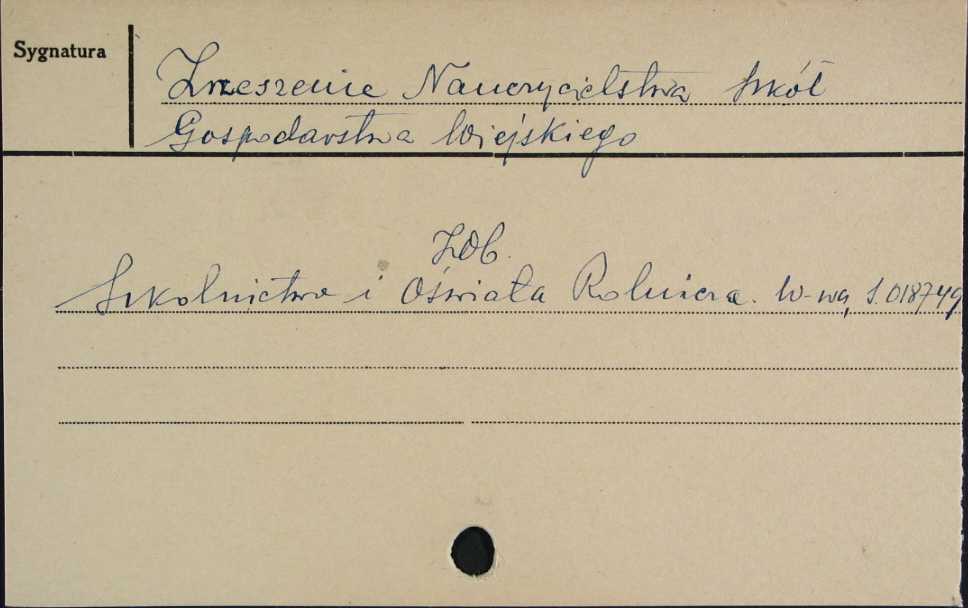 Sygnatura
Zrzeszenie Nauczycielstwa Szkół
Gospodarstwa Wiejskiego
Zob.
Szkolnictwo i Oświata Rolnicza. W-wa, S.018749